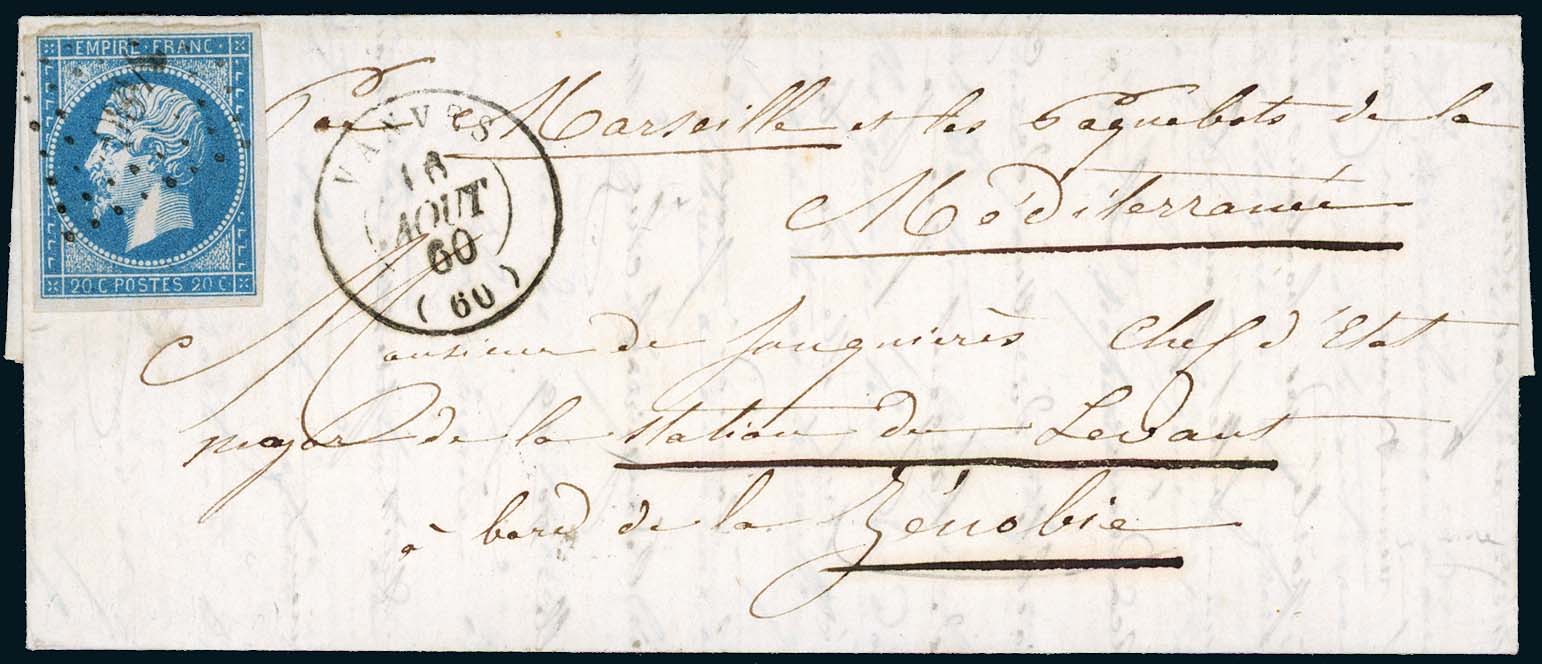 EMPIRE·FRANC·
20 C POSTES 20 C
VANVES
18
AOUT
60
(60)
Par Marseille et les Paquebots de la
Méditerranée
Monsieur de Jonquières Chef d'Etat
major de la station du Levant
à bord de la Zénobie